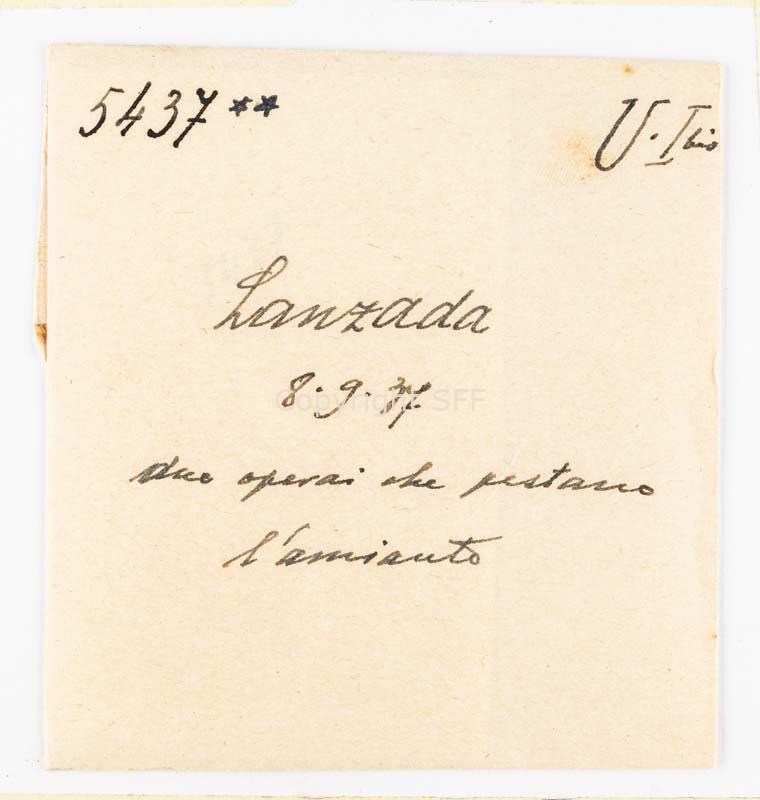 5437 **
U. I bis
Lanzada
8.9.37
Copyright SFF
due operai che pestano
l'amianto